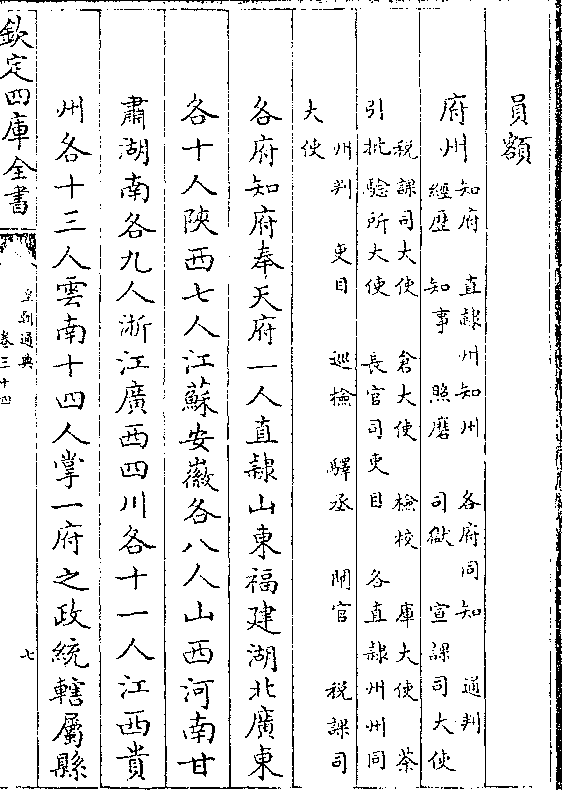 員額
府州
知府 直隸州知州 各府同知 通判
經歷 知事 照磨 司獄 宣課司大使
税課司大使 倉大使 檢校 庫大使 茶
引批驗所大使 長官司吏目 各直隸州州同
州判 吏目 巡檢 驛丞 閘官 税課司
大使
各府知府奉天府一人直隸山東福建湖北廣東
各十人陜西七人江蘇安徽各八人山西河南甘
肅湖南各九人浙江廣西四川各十一人江西貴
州各十三人雲南十四人掌一府之政統轄屬縣
欽定四庫全書
皇朝通典
卷三十四
七